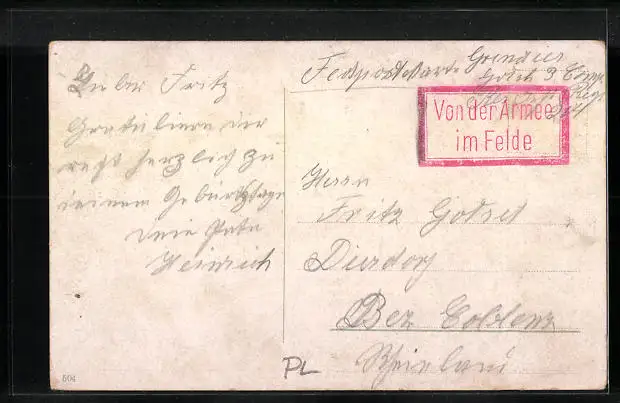 Lieber Fritz
Gratuliere dir
recht herzlich zu
deinem Geburtstage
Dein Pate
Heinrich
Feldpostkarte Grenadier
3 Comp
Regt
Von der Armee
im Felde
Herrn
Fritz
Dierdorf
Bez Coblenz
Rheinland
PL
504